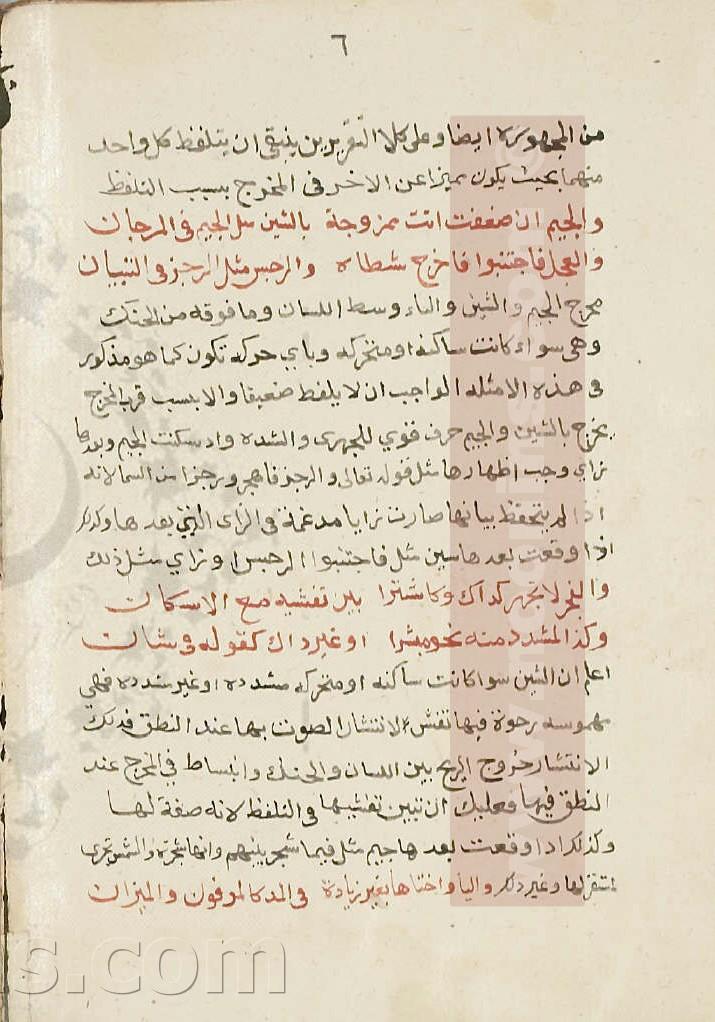 ٦
من المجهورة ايضا وعلى كلا التقريرين ينبقى ان يتلفظ كل واحد
منهما بحيث يكون مميزا عن الاخر فى المخرج بسبب التلفظ
والجيم ان ضعفت اتت ممزوجة بالشين مثل الجيم فى المرجان
والعجل فاجتنبوا فاخرج شطاه والرجس مثل الرجز فى التبيان
مخرج الجيم والشين والياء وسط اللسان وما فوقه من الحنك
وهى سواء كانت ساكنه او متحركه وباي حركه تكون كما هو مذكور
فى هذه الامثله الواجب ان لا يلفظ ضعيفا والا بسبب قرب المخرج
يخرج بالشين والجيم حرف قوي للجهرى والشده واد سكنت الجيم وبعدها
زاي وجب اظهارها مثل قوله تعالى والرجز فاهجر ورجزا من السما لانه
اذا لم يتحفظ ببيانها صارت زايا مدغمة فى الزاى التى بعدها وكذلك
اذا وقعت بعدها سين مثل فاجتنبوا الرجس او زاي مثل ذلك
والفجر لا تجهر كداك وكاشترا بين تفشيه مع الاسكان
وكذا المشدد منه نحو مبشرا او غير ذاك كقوله فى شان
اعلم ان الشين سوا كانت ساكنه او متحركه مشدده او غير مشدده فهي
مهموسه رخوة فيها تفش الانتشار الصوت بها عند النطق فدلك
الانتشار خروج الريح بين اللسان والحنك وانبساط في المخرج عند
النطق فيها فعليك ان تبين تفشيها فى التلفظ لانه صفة لها
وكذلك اذا وقعت بعدها جيم مثل فيما شجر بينهم وانها شجرة والشمس تجرى
لمستقر لها وغير دلك واليا واختاها بغير زيادة فى المد كالموفون والميزان
s.com